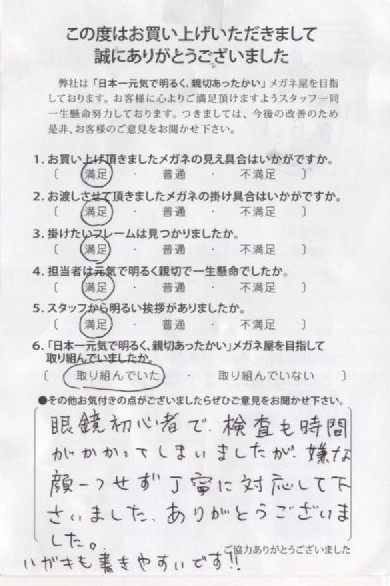 この度はお買い上げいただきまして
誠にありがとうございました
弊社は「日本一元気で明るく、親切あったかい」メガネ屋を目指
しております。お客様に心よりご満足頂けますようスタッフ一同
一生懸命努力しております。つきましては、今後の改善のため
是非、お客様のご意見をお聞かせ下さい。
1. お買い上げ頂きましたメガネの見え具合はいかがですか。
〔 満足 ・ 普通 ・ 不満足 〕
2. お渡しさせて頂きましたメガネの掛け具合はいかがですか。
〔 満足 ・ 普通 ・ 不満足 〕
3. 掛けたいフレームは見つかりましたか。
〔 満足 ・ 普通 ・ 不満足 〕
4. 担当者は元気で明るく親切で一生懸命でしたか。
〔 満足 ・ 普通 ・ 不満足 〕
5. スタッフから明るい挨拶がありましたか。
〔 満足 ・ 普通 ・ 不満足 〕
6. 「日本一元気で明るく、親切あったかい」メガネ屋を目指して
取り組んでいましたか。
〔 取り組んでいた ・ 取り組んでいない 〕
●その他お気付きの点がございましたらぜひご意見をお聞かせ下さい。
眼鏡初心者で、検査も時間
がかかってしまいましたが、嫌な
顔一つせず丁寧に対応して下
さいました、ありがとうございま
した。
ご協力ありがとうございました
ハガキも書きやすいです!!